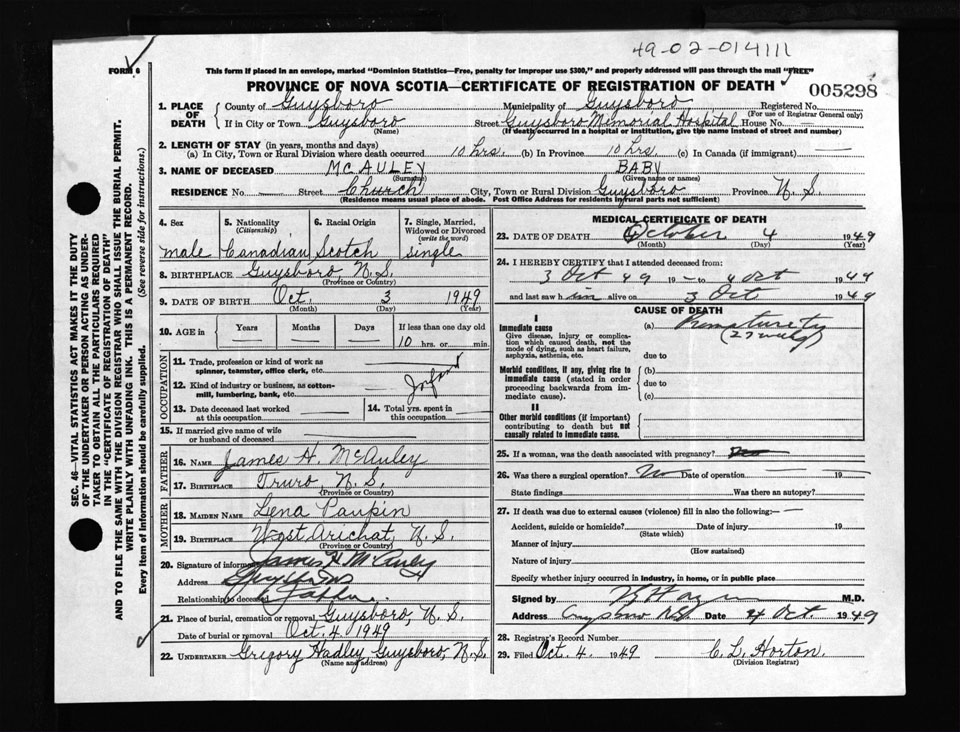 49-02-014111
FORM 6
This form if placed in an envelope, marked "Dominion Statistics—Free, penalty for improper use $300," and properly addressed will pass through the mail "FREE"
PROVINCE OF NOVA SCOTIA—CERTIFICATE OF REGISTRATION OF DEATH
005298
1. PLACE OF DEATH
County of Guysboro Municipality of Guysboro Registered No.
(For use of Registrar General only)
If in City or Town Guysboro Street Guysboro Memorial Hospital House No. —
(Name) (If death occurred in a hospital or institution, give the name instead of street and number)
2. LENGTH OF STAY (in years, months and days)
(a) In City, Town or Rural Division where death occurred 10 hrs. (b) In Province 10 hrs. (c) In Canada (if immigrant) —
3. NAME OF DECEASED MCAULEY BABY
(Surname) (Given name or names)
RESIDENCE No. — Street Church City, Town or Rural Division Guysboro Province N.S.
(Residence means usual place of abode. Post Office Address for residents in rural parts not sufficient)
4. Sex
male
5. Nationality (Citizenship)
Canadian
6. Racial Origin
Scotch
7. Single, Married, Widowed or Divorced (write the word)
single
8. BIRTHPLACE Guysboro, N.S.
(Province or Country)
9. DATE OF BIRTH Oct. 3 1949
(Month) (Day) (Year)
10. AGE in
Years Months Days If less than one day old
10 hrs. or min.
OCCUPATION
11. Trade, profession or kind of work as spinner, teamster, office clerk, etc.
Infant
12. Kind of industry or business, as cotton-mill, lumbering, bank, etc.
13. Date deceased last worked at this occupation
14. Total yrs. spent in this occupation
15. If married give name of wife or husband of deceased
FATHER
16. NAME James H. McAuley
17. BIRTHPLACE Truro, N.S.
(Province or Country)
MOTHER
18. MAIDEN NAME Lena Paupin
19. BIRTHPLACE West Arichat, N.S.
(Province or Country)
20. Signature of informant James H McAuley
Address Guysboro
Relationship to deceased Father
21. Place of burial, cremation or removal Guysboro, N.S.
Date of burial or removal Oct. 4 1949
22. UNDERTAKER Gregory Hadley, Guysboro, N.S.
(Name and address)
MEDICAL CERTIFICATE OF DEATH
23. DATE OF DEATH October 4 1949
(Month) (Day) (Year)
24. I HEREBY CERTIFY that I attended deceased from:
3 Oct 49 19 to 4 Oct 1949
and last saw him alive on 3 Oct 1949
CAUSE OF DEATH
I
Immediate cause
Give disease, injury or complication which caused death, not the mode of dying, such as heart failure, asphyxia, asthenia, etc.
(a) Prematurity
due to
Morbid conditions, if any, giving rise to immediate cause (stated in order proceeding backwards from immediate cause).
(b)
due to
(c)
II
Other morbid conditions (if important) contributing to death but not causally related to immediate cause.
25. If a woman, was the death associated with pregnancy?
26. Was there a surgical operation? No Date of operation — 19—
State findings Was there an autopsy?
27. If death was due to external causes (violence) fill in also the following:—
Accident, suicide or homicide? Date of injury 19
(State which)
Manner of injury
(How sustained)
Nature of injury
Specify whether injury occurred in industry, in home, or in public place
Signed by M.D.
Address Guysboro N.S. Date 4 Oct. 1949
28. Registrar's Record Number
29. Filed Oct. 4. 1949 C. L. Horton.
(Division Registrar)
SEC. 46—VITAL STATISTICS ACT MAKES IT THE DUTY
OF THE UNDERTAKER OR PERSON ACTING AS UNDER-
TAKER TO OBTAIN ALL THE PARTICULARS REQUIRED
IN THE "CERTIFICATE OF REGISTRATION OF DEATH"
AND TO FILE THE SAME WITH THE DIVISION REGISTRAR WHO SHALL ISSUE THE BURIAL PERMIT.
WRITE PLAINLY WITH UNFADING INK. THIS IS A PERMANENT RECORD.
Every item of information should be carefully supplied. (See reverse side for instructions.)